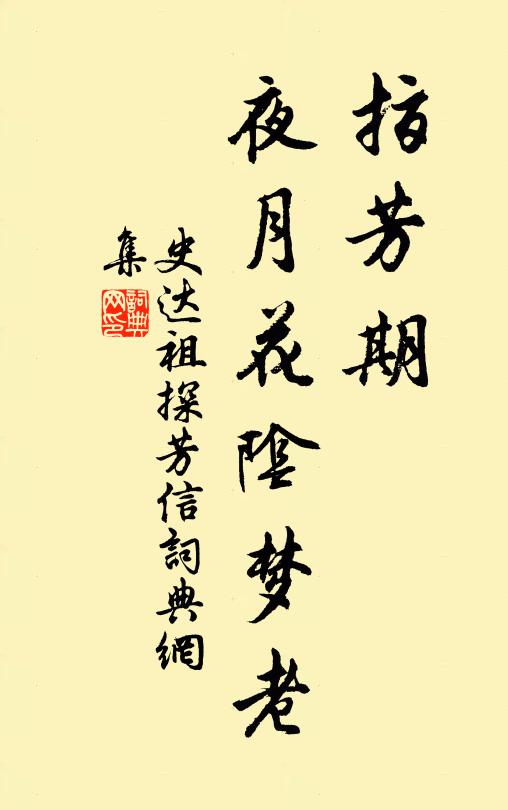 指芳期
夜月花陰梦老
史达祖探芳信詞典網
集
詞典
网印